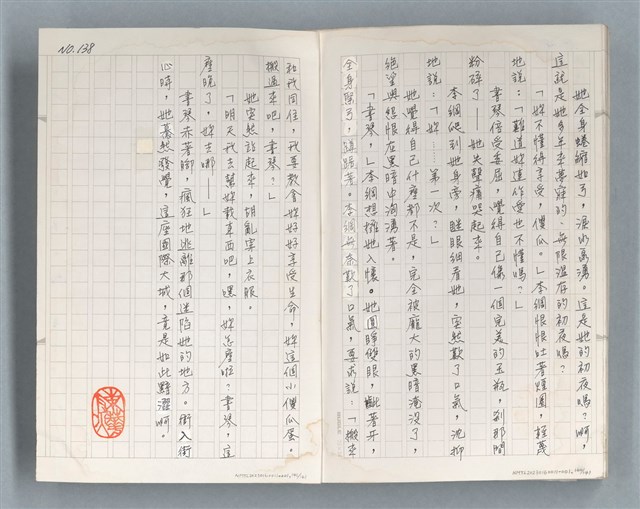 她全身蜷縮如了，淚水高湧。這是她的初夜嗎？啊，
這就是她多年來夢寐的、無限溫存的初夜嗎？
「妳不懂得享受，傻瓜。」李綱恨恨吐著煙圈，輕蔑
地說：「難道妳連作愛也不懂嗎？」
書琴倍受委屈，覺得自己像一個完美的玉瓶，剎那間
粉碎了——她失聲痛哭起來。
李綱爬到她身旁，瞇眼細看她，突然歎了口氣，沈抑
地說：「妳……第一次？」
她覺得自己什麼都不是，完全被龐大的黑暗淹沒了，
絕望與怨恨在黑暗中洶湧著。
「書琴，」李綱想擁她入懷。她圓睜雙眼，著牙，
全身，李綱無奈歎了口氣，要求說：「搬來
和我同住，我要教會妳好好享受生命，妳這個小傻瓜蛋。
搬過來吧，書琴？」
她突然跳起來，胡亂穿上衣服。
「明天我去幫妳載東西吧，嘿，妳怎麼啦？書琴，這
麼晚了，妳去哪——」
書琴赤著腳，瘋狂地逃離那個迷陷她的地方。衝入街
心時，她驀然發覺，這座國際大城，竟是如此黯濯啊。
NO. 138